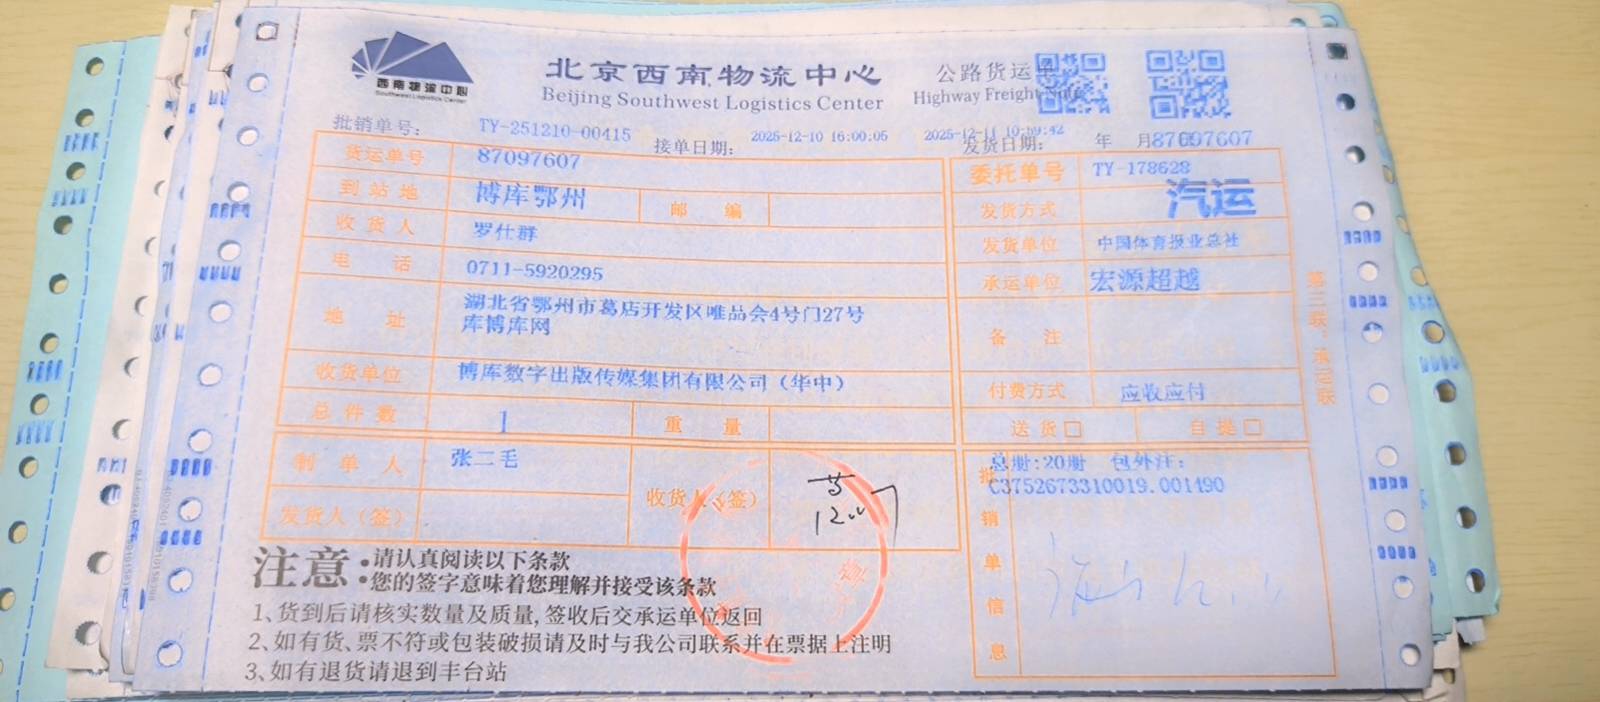 西南物流中心
Southwest Logistics Center
北京西南物流中心
Beijing Southwest Logistics Center
公路货运单
Highway Freight Note
批销单号: TY-251210-00415
接单日期: 2025-12-10 16:00:05
发货日期: 2025-12-11 10:59:42 年 月
87097607
货运单号 87097607
委托单号 TY-178628
到站地 博库鄂州 邮编
发货方式 汽运
收货人 罗仕群
发货单位 中国体育报业总社
电话 0711-5920295
承运单位 宏源超越
地址 湖北省鄂州市葛店开发区唯品会4号门27号
库博库网
备注
收货单位 博库数字出版传媒集团有限公司(华中)
付费方式 应收应付
总件数 1 重量
送货□ 自提□
制单人 张二毛
收货人(签)
12.
发货人(签)
批销单信息
总册:20册 包外注:
C3752673310019.001490
第三联:承运联
注意
•请认真阅读以下条款
•您的签字意味着您理解并接受该条款
1、货到后请核实数量及质量,签收后交承运单位返回
2、如有货、票不符或包装破损请及时与我公司联系并在票据上注明
3、如有退货请退到丰台站